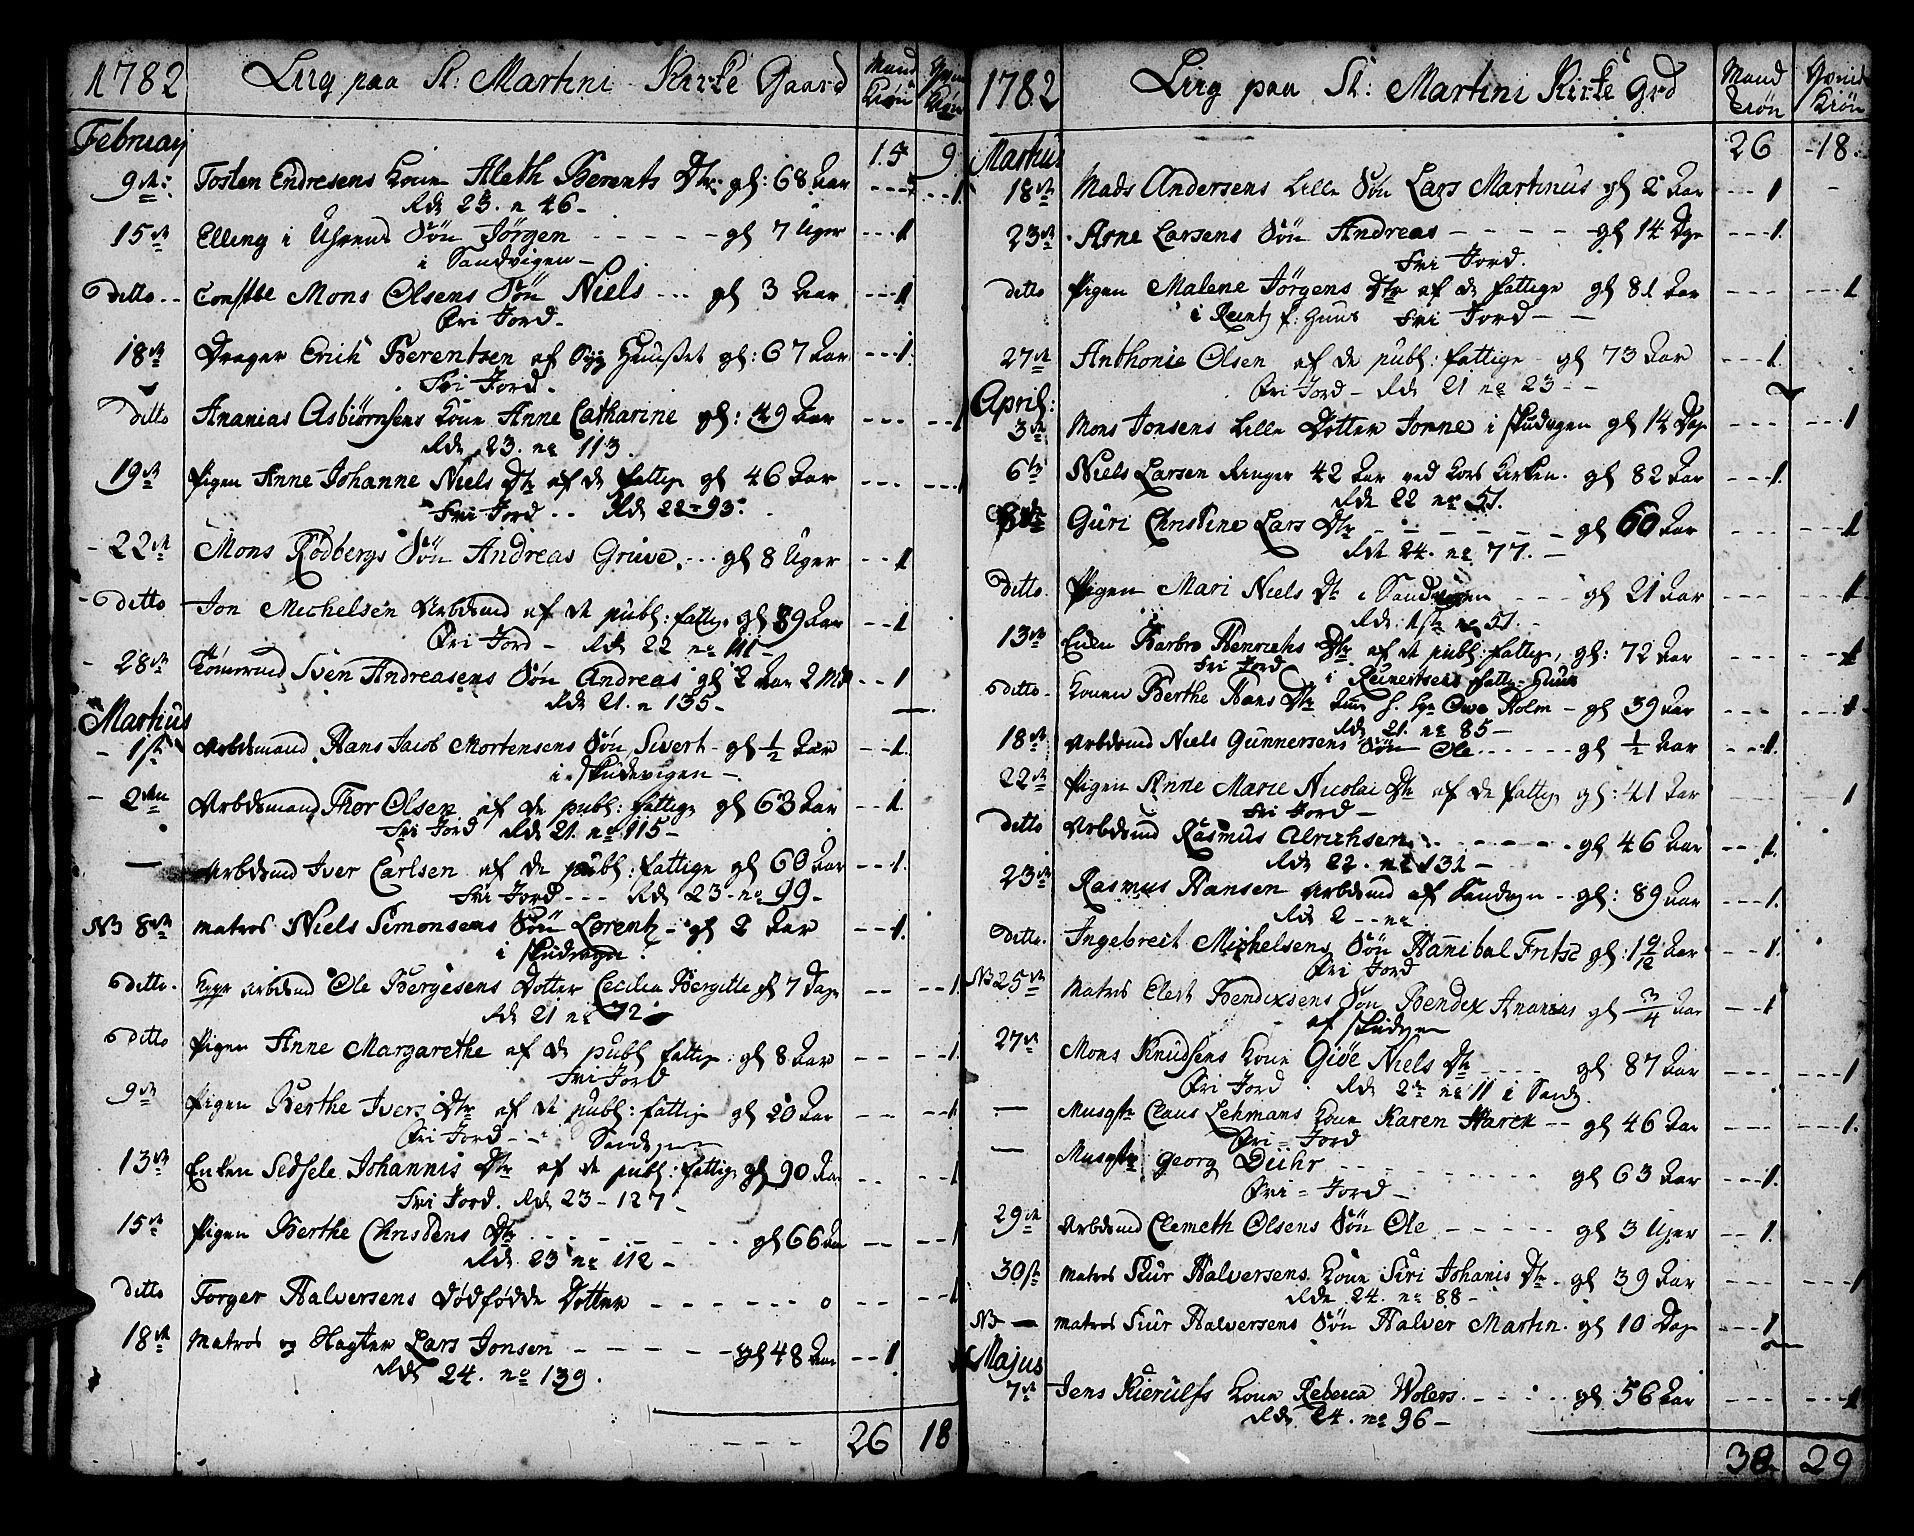 1782 Liig paa St: Martini Kirke Gaard Mand Kiøn Qvin Kiøn
February 15 9
9de: Tosten Endresens Kone Aleth Berents Dtr. gl: 68 Aar --- 1
Rde 23. n 46 -
15de Elling i Uhrens Søn Jørgen - - - - - gl 7 Uger --- 1
i Sandvigen -
Ditto .. Constbe Mons Olsens Søn Niels ... gl 3 Aar --- 1
Fri Jord -
18de Drager Erich Berentsen af Syg Huuset gl: 67 Aar --- 1.
Fri Jord -
Ditto Ananias Asbiørnsens Kone Anne Catharine gl: 49 Aar --- --1
Rde 23. no 113.
19de Pigen Anne Johanne Niels Dtr af de fattige gl 46 Aar --- --1
Fri Jord .. Rde 22 - 93 -
22de Mons Rødbergs Søn Andreas Grieve ... gl 8 Uger --1
Ditto Jon Michelsen Arbdsmd af de publ: fattige gl 89 Aar --1
Fri Jord - Rde 22 no 141 -
28de Tømrmd Sven Andreasens Søn Andreas gl 2 Aar 2 Md --1
Rde 21. n 135 -
Martius
1ste Arbdsmand Hans Jacob Mortensens Søn Sivert - gl ½ Aar --1.
i Skudevigen -
2den Arbdsmand Thor Olsen af de publ: fattige gl 63 Aar --1.
Fri Jord Rde 21. no 115 -
— Arbdsmd Iver Carlsen af de publ: fattige gl 60 Aar ---1.
Fri Jord --- Rde 23 - no 99 -
NB 8de Matros Niels Simonsens Søn Lorentz - gl 2 Aar --1.
i Skudvigen.
Ditto. Arbdsmd Ole Børgesens Dotter Cecilia Bergitte gl 7 Dage -- --1.
Rde 21 no 72
Ditto Pigen Anne Margarethe af de publ fattige: gl 8 Aar -- --1.
Fri Jord
9de Pigen Berthe Ivers Dtr af de publ: fattige gl 20 Aar -- --1
Fri Jord -- Sandvigen
13de Enken Sedsele Johannis Dtr af de publ: fattige gl 90 Aar -- --1
Fri Jord. Rde 23 - 127 -
15de Pigen Berthe Christens Dtr - - - - - gl 66 Aar -- --1
Rde 23 no 112 -
Ditto Torger Halversens Dødfødde Dotter - - - - - - 0 -- --1
18de Matros og Vagter Lars Jonsen - - - - - gl 48 Aar --1
Rde 24. no 139.
- - - - 26 18
1782 Liig paa St: Martini Kirke Grd Mand Kiøn Qvinde Kiøn
Martius 26 18.
18de Mads Andersens Lille Søn Lars Martinus gl 2 Aar -- 1 -
23de Arne Larsens Søn Andreas - - - - - gl 14 Dge ---1.
Fri Jord.
Ditto Pigen Malene Jørgens Dtr af de fattige gl 81 Aar --- ---1
i Reintz f: Huus Fri Jord -
27de Anthonie Olsen af de publ: fattige - gl 73 Aar ---1.
Fri Jord - Rde 21 no 23 --
April:
3de Mons Jonsens Lille Dotter Jonne i Skudvigen gl 14 Dage --- ---1
6te Niels Larsen Ringer 42 Aar ved Kors Kirken. gl 82 Aar ---1.
Rde 22 no 57.
Guri Christine Lars Dtr - - - - - - gl 60 Aar --- ---1
Rde 24. no 77. -
Ditto. Pigen Mari Niels Dtr i Sandvigen - - - gl 21 Aar --- ---1
Rde 1ste no 51. -
13de Enken Barbro Henrichs Dtr af de publ: fattige, gl: 72 Aar --- ---1
Fri Jord i Reinertsens fattig-Huus
Ditto. Konen Berthe Hans Dtr Owe Holm - gl 39 Aar --- ---1
Rde 21. no 85 -
18de Arbdsmd Niels Gunnersens Søn Ole ...... gl ½ Aar ---1.
22de Pigen Anne Marie Nicolai Dtr af de fattige gl: 41 Aar --- 1
Fri Jord -
Ditto Arbdsmd Rasmus Alrichsen. . - - - - - gl 46 Aar ---1.
Rde 22. no 132 -
23de Rasmus Hansen Arbdsmd af Sandvign -- gl: 89 Aar ---1.
Rde 2 -- no
Ditto. Ingebreit Michelsens Søn Hannibal Fritse gl: 1 9/12 Aar --1.
Fri Jord
NB 25de Matros Elert Bendixsens Søn Bendix Ananias gl 3/4 Aar ---1
af Skudvigen
27de Mons Knudsens Kone Giøe Niels Dtr ---- gl 87 Aar --- ---1
Fri Jord . Rde 2de no 11 i Sandv.
— Musqtr Claus Lehmans Kone Karen Harck -- gl 46 Aar --- ---1.
Fri = Jord
— Musqtr Georg Dühr - - - - - - - gl 63 Aar ---1.
Fri = Jord -
29de Arbdsmd Clemeth Olsens Søn Ole - - - - - gl 3 Uger --1.
30te Matros Siur Halversens Kone Siri Johanis Dtr - gl 39 Aar --- ---1
Rde 24. no 88 -
NB — Matros Siur Halversens Søn Halver Martin. gl 10 Dage ---1
Majus
7de Jens Kierulfs Kone Rebecca Wolers. - - - - gl 56 Aar --- ---1
Rde 24. no 96 -
38. 29